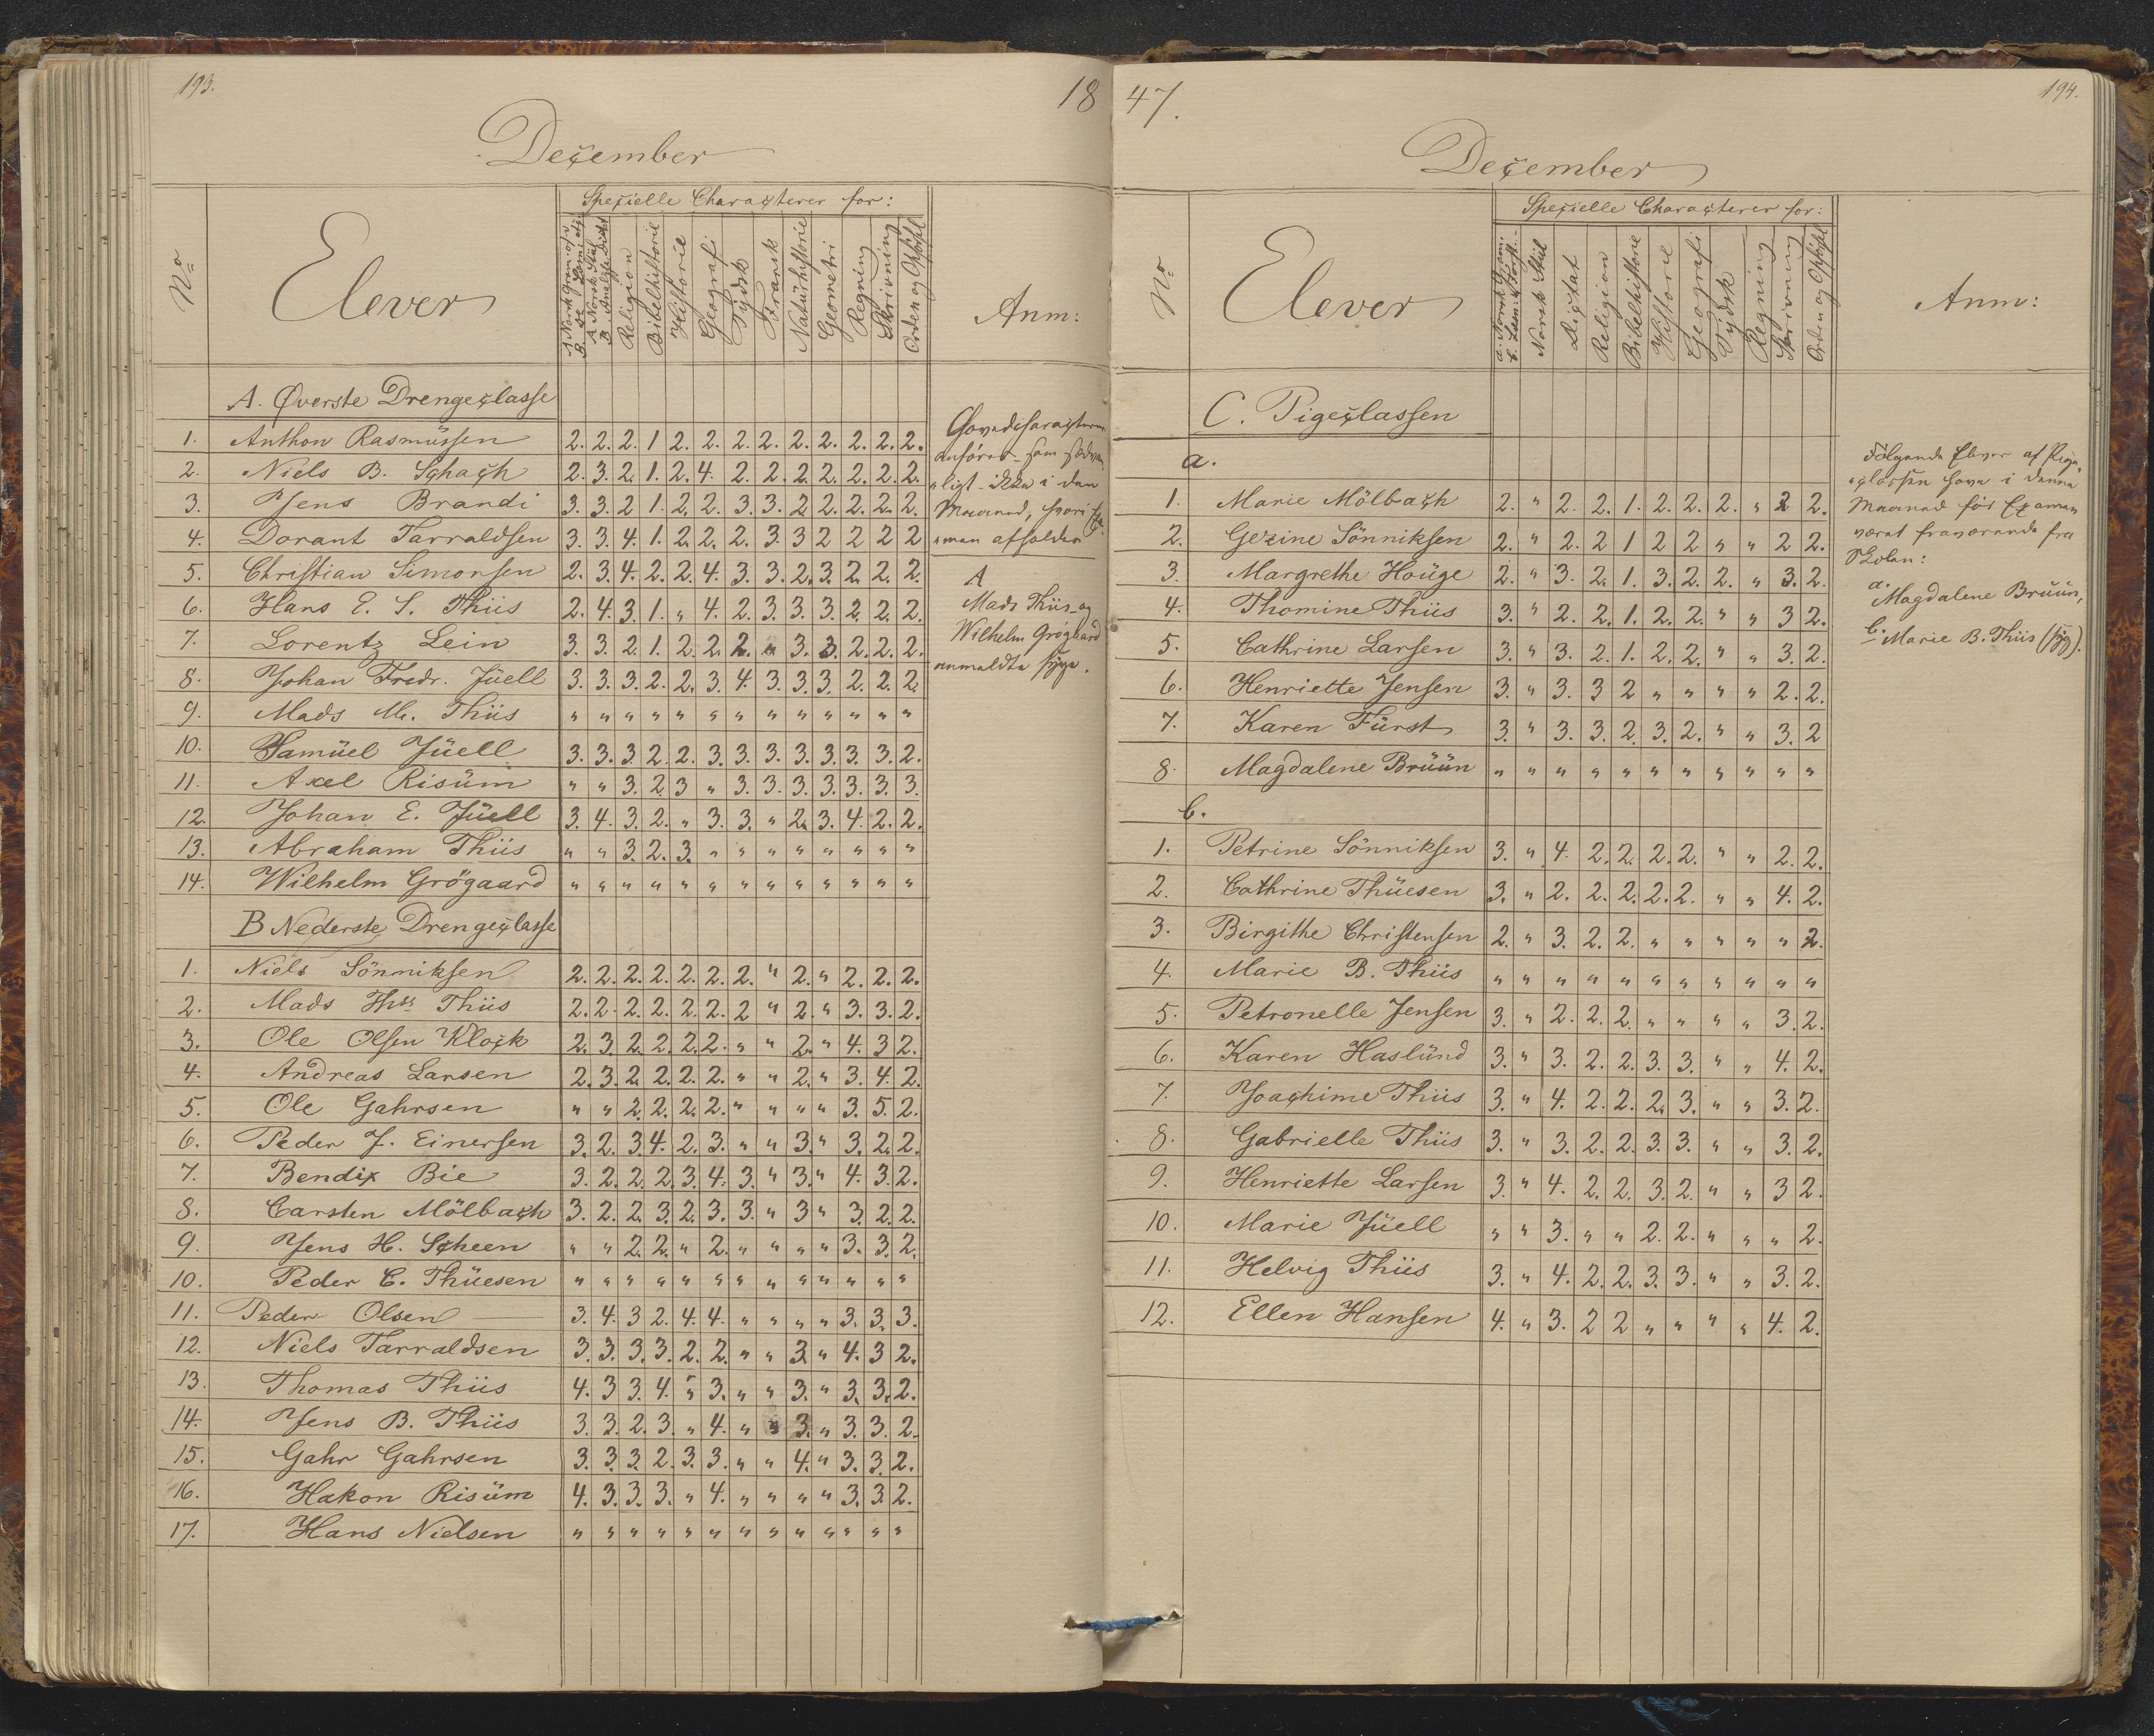 193.
18
December
Specielle Characterer for:
No
Elever
A Norsk Gram: o/s
A Norsk Stiil
B. Analyse Dictat
Religion
Bibelhistorie
Historie
Geografi
Tydsk
Fransk
Natürhistorie
Geometri
Regning
Skrivning
Orden og Opförsel
Anm:
A. Øverste Drengeclasse
1. Anthon Rasmüssen 2. 2. 2. 1 2. 2. 2. 2. 2. 2. 2. 2. 2.
2. Niels B. Schach 2. 3. 2. 1. 2. 4. 2. 2. 2. 2. 2. 2. 2.
3. Jens Brandi 3. 3. 2 1. 2. 2. 3. 3 2 2. 2. 2. 2.
4. Dorant Tarraldsen 3. 3. 4. 1. 2. 2. 2. 3. 3 2 2 2 2
5. Christian Simonsen 2. 3. 4. 2. 2. 4. 3. 3. 2. 3. 2. 2. 2.
6. Hans E. S. Thiis 2. 4. 3. 1. " 4. 2. 3. 3. 3. 2. 2. 2.
7. Lorentz Lein 3. 3. 2. 1. 2. 2. 2. " 3. 3. 2. 2. 2.
8. Johan Fredr. Jüell 3. 3. 3. 2. 2. 3. 4. 3. 3. 3. 2. 2. 2.
9. Mads M. Thiis " " " " " " " " " " " " "
10. Samüel Jüell 3. 3. 3. 2. 2. 3. 3. 3. 3. 3. 3. 3. 2.
11. Axel Risüm " " 3. 2. 3 " 3. 3. 3. 3. 3. 3. 3.
12. Johan E. Jüell 3. 4. 3. 2. " 3. 3. " 2. 3. 4. 2. 2.
13. Abraham Thiis " " 3. 2. 3. " " " " " " " "
14. Wilhelm Grögaard " " " " " " " " " " " " "
B Nederste Drengeclasse
1. Niels Sönniksen 2. 2. 2. 2. 2. 2. 2. " 2. " 2. 2. 2.
2. Mads Ths. Thiis 2. 2. 2. 2. 2. 2. 2 " 2. " 3. 3. 2.
3. Ole Olsen Klock 2. 3. 2. 2. 2. 2. " " 2. " 4. 3 2.
4. Andreas Larsen 2. 3. 2. 2. 2. 2. " " 2. " 3. 4. 2.
5. Ole Gahrsen " " 2. 2. 2. 2. " " " " 3. 5. 2.
6. Peder J. Einersen 3. 2. 3. 4. 2. 3. " " 3. " 3. 2. 2.
7. Bendix Bie 3. 2. 2. 2. 3. 4. 3. " 3. " 4. 3. 2.
8. Carsten Mölbach 3. 2. 2. 3. 2. 3. 3. " 3 " 3. 2. 2.
9. Jens H. Scheen " " 2. 2. " 2. " " " " 3. 3. 2.
10. Peder C. Thüesen " " " " " " " " " " " " "
11. Peder Olsen 3. 4. 3 2. 4. 4. " " " " 3. 3. 3.
12. Niels Tarraldsen 3. 3. 3. 3. 2. 2. " " 3. " 4. 3 2.
13. Thomas Thiis 4. 3 3. 4. " 3. " " 3. " 3. 3. 2.
14. Jens B. Thiis 3. 3. 2. 3. " 4. " " 3. " 3. 3. 2.
15. Gahr Gahrsen 3. 3. 3. 2. 3. 3. " " 4. " 3. 3. 2.
16. Hakon Risüm 4. 3. 3. 3. " 4. " " " " 3. 3. 2.
17. Hans Nielsen " " " " " " " " " " " " "
Hovedcharacteren
anföres som sædvan-
ligt ikke i den
Maaned, hvori Exa-
men afholdes
A
Mads Thiis og
Wilhelm Grögaard
anmeldte syge.
47.
194.
December
Specielle Characterer for:
No
Elever
a. Norsk Gram:
Norsk Stiil
Dictat
Religion
Bibelhistorie
Historie
Geografi
Tydsk
Regning
Skrivning
Orden og Opförsel
Anm:
C. Pigeclassen
a.
1. Marie Mölbach 2. " 2. 2. 1. 2. 2. 2. " 2 2.
2. Gezine Sönniksen 2. " 2. 2 1 2 2 " " 2 2.
3. Margrethe Houge 2. " 3. 2. 1. 3. 2. 2. " 3. 2.
4. Thomine Thiis 3. " 2. 2. 1. 2. 2. " " 3 2.
5. Cathrine Larsen 3. " 3. 2. 1. 2. 2. " " 3. 2.
6. Henriette Jensen 3. " 3. 3 2 " " " " 2. 2.
7. Karen Fürst 3. " 3. 3. 2. 3. 2. " " 3. 2
8. Magdalene Brüün " " " " " " " " " " "
b.
1. Petrine Sönniksen 3. " 4. 2. 2. 2. 2. " " 2. 2.
2. Cathrine Thüesen 3. " 2. 2. 2. 2. 2. " " 4. 2.
3. Birgithe Christensen 2. " 3. 2. 2. " " " " " 2.
4. Marie B. Thiis " " " " " " " " " " "
5. Petronelle Jensen 3. " 2. 2. 2. " " " " 3. 2.
6. Karen Haslünd 3. " 3. 2. 2. 3. 3. " " 4. 2.
7. Joachime Thiis 3. " 4. 2. 2. 2. 3. " " 3. 2.
8. Gabrielle Thiis 3. " 3. 2. 2. 3. 3. " " 3. 2.
9. Henriette Larsen 3. " 4. 2. 2. 3. 2. " " 3 2.
10. Marie Jüell " " 3. " " 2. 2. " " " 2.
11. Helvig Thiis 3. " 4. 2. 2. 3. 3. " " 3. 2.
12. Ellen Hansen 4. " 3. 2 2 " " " " 4. 2.
Følgende Elever af Pige-
classen have i denne
Maaned før Examen
været fraværende fra
Skolen:
a. Magdalene Brüün,
b. Marie B. Thiis (syg).